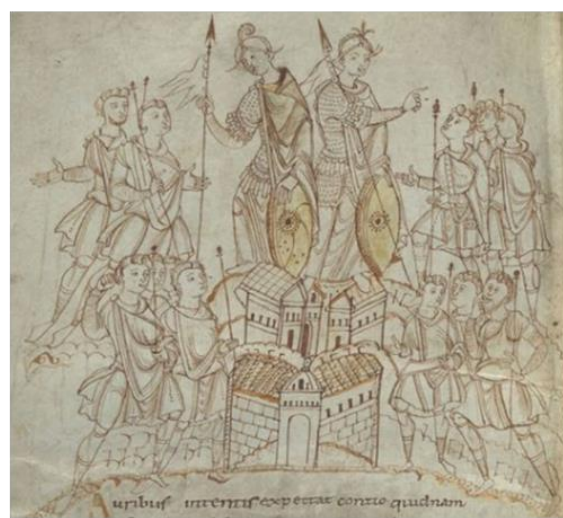 Auribus intentis expectat contio quidnam